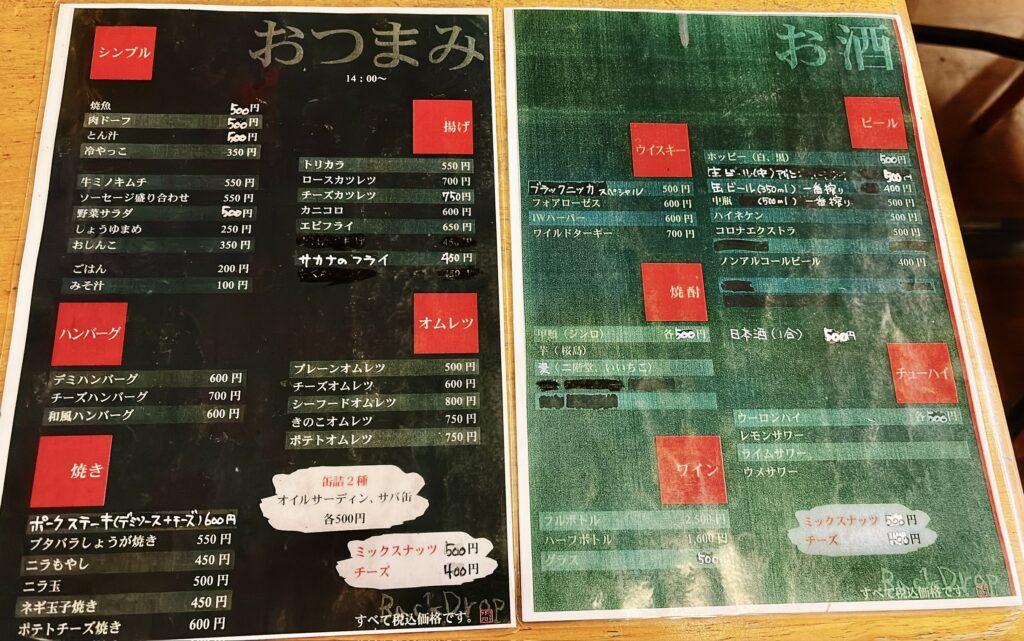 おつまみ
14：00～
シンプル
焼魚 500円
肉ドーフ 500円
とん汁 500円
冷やっこ 350円
牛ミノキムチ 550円
ソーセージ盛り合わせ 550円
野菜サラダ 500円
しょうゆまめ 250円
おしんこ 350円
ごはん 200円
みそ汁 100円
ハンバーグ
デミハンバーグ 600円
チーズハンバーグ 700円
和風ハンバーグ 600円
焼き
ポークステーキ(デミソース+チーズ) 600円
ブタバラしょうが焼き 550円
ニラもやし 450円
ニラ玉 500円
ネギ玉子焼き 450円
ポテトチーズ焼き 600円
揚げ
トリカラ 550円
ロースカツレツ 700円
チーズカツレツ 750円
カニコロ 600円
エビフライ 650円
サカナのフライ 450円
オムレツ
プレーンオムレツ 500円
チーズオムレツ 600円
シーフードオムレツ 800円
きのこオムレツ 750円
ポテトオムレツ 750円
缶詰２種
オイルサーディン、サバ缶
各500円
ミックスナッツ 500円
チーズ 400円
BackDrop
すべて税込価格です。
お酒
ウイスキー
ブラックニッカ スペシャル 500円
フォアローゼス 600円
IWハーパー 600円
ワイルドターキー 700円
焼酎
甲類（ジンロ） 各500円
芋（桜島）
麦（二階堂、いいちこ）
ワイン
フルボトル 2,500円
ハーフボトル 1,600円
グラス 500
ビール
ホッピー（白、黒） 500円
生ビール(中) 500
缶ビール(350ml) 一番搾り 400円
中瓶 (500ml) 一番搾り 500円
ハイネケン 500円
コロナエクストラ 500円
ノンアルコールビール 400円
日本酒(1合) 500円
チューハイ
ウーロンハイ 各500円
レモンサワー
ライムサワー
ウメサワー
ミックスナッツ 500円
チーズ 400円
BackDrop
すべて税込価格です。